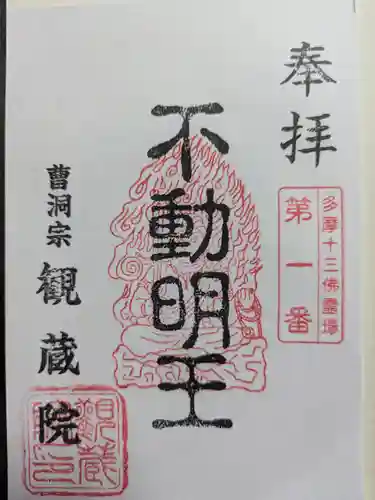 奉拝
多摩十三佛霊場
第一番
不動明王
曹洞宗 観蔵院
観蔵院印